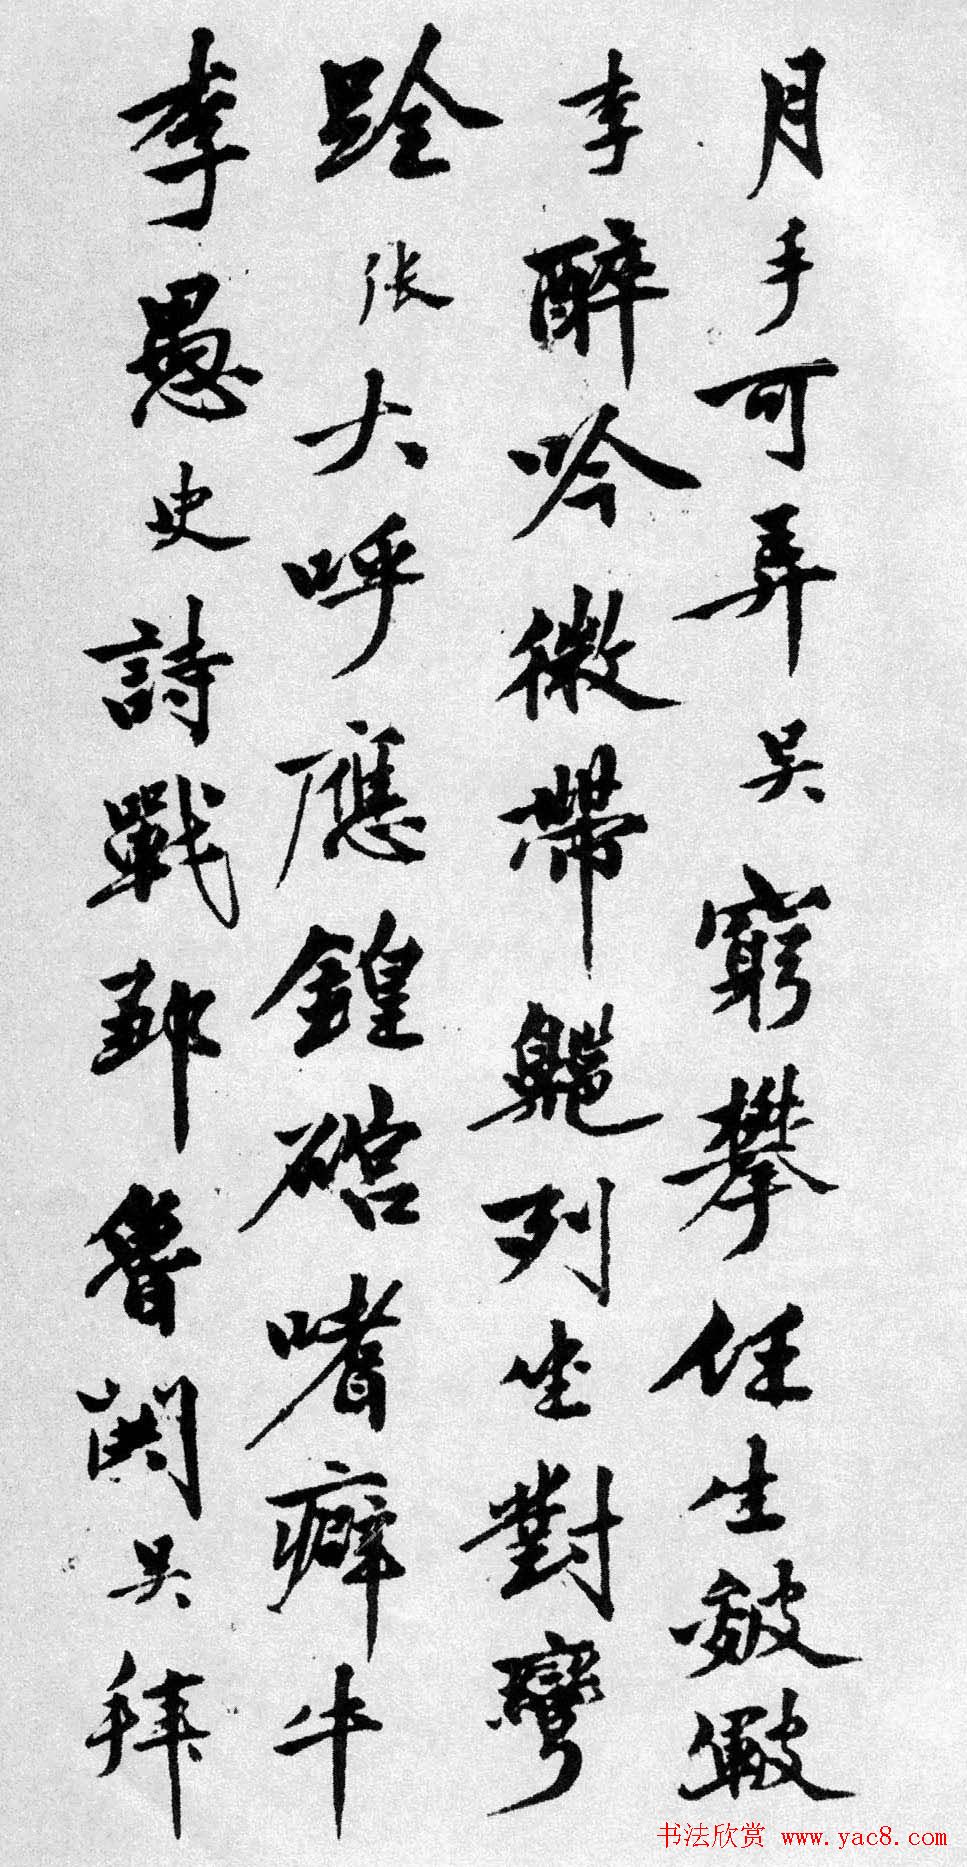 月手可弄吴窮攀任生皴皸
李醉吟微帶鼾列坐對彎
跧张大呼應鍠硿嗜癖牛
李愚史詩戰郢魯閧吴拜
书法欣赏 www.yac8.com